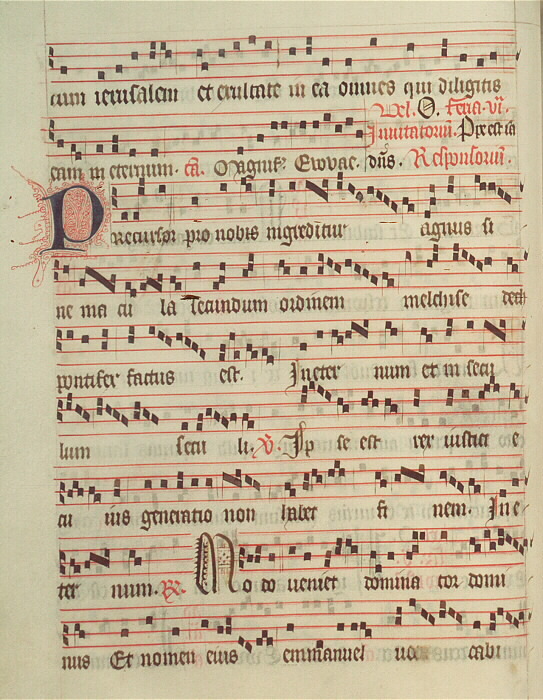 cum ierusalem et exultate in ea omnes qui diligitis
Vel. O. feria. vi.
Invitatorium. Prestola
eam in eternum. ca. Magnificat. Evovae. dns. Responsorium.
Precursor pro nobis ingreditur agnus si
ne ma cu la Secundum ordinem melchise dech
pontifex factus est. In eter num et in secu
lum secu li. V. Ip se est rex iustici e
cu ius generatio non habet fi nem. In e
ter num. R. Modo veniet domina tor domi
nus Et nomen eius emmanuel vo cabi